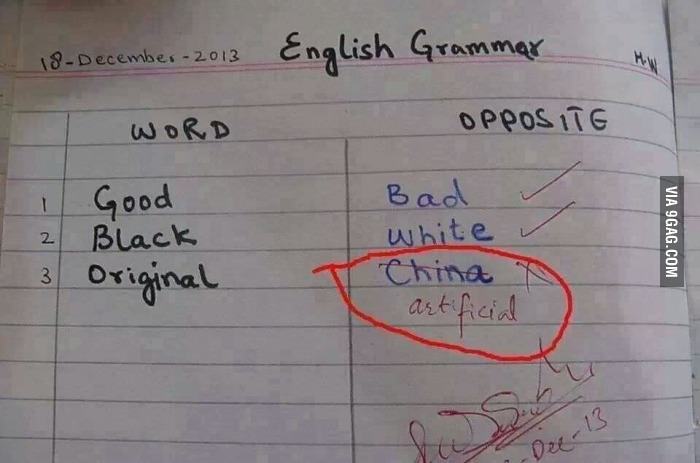 18-December-2013 English Grammar H.W
WORD OPPOSITE
1 Good Bad
2 Black White
3 Original China
artificial
Dec-13
VIA 9GAG.COM